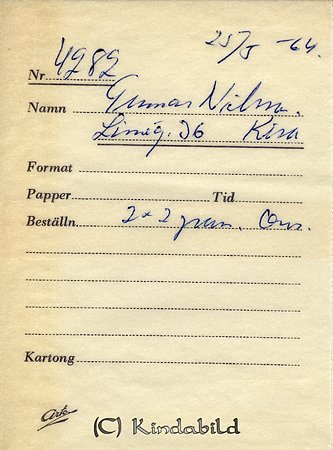 25/5 -64.
Nr 4282
Namn Gunnar Nilsson.
36 Kisa
Format
Papper Tid
Beställn 2 x 2
Kartong
Arko
(C) Kindabild